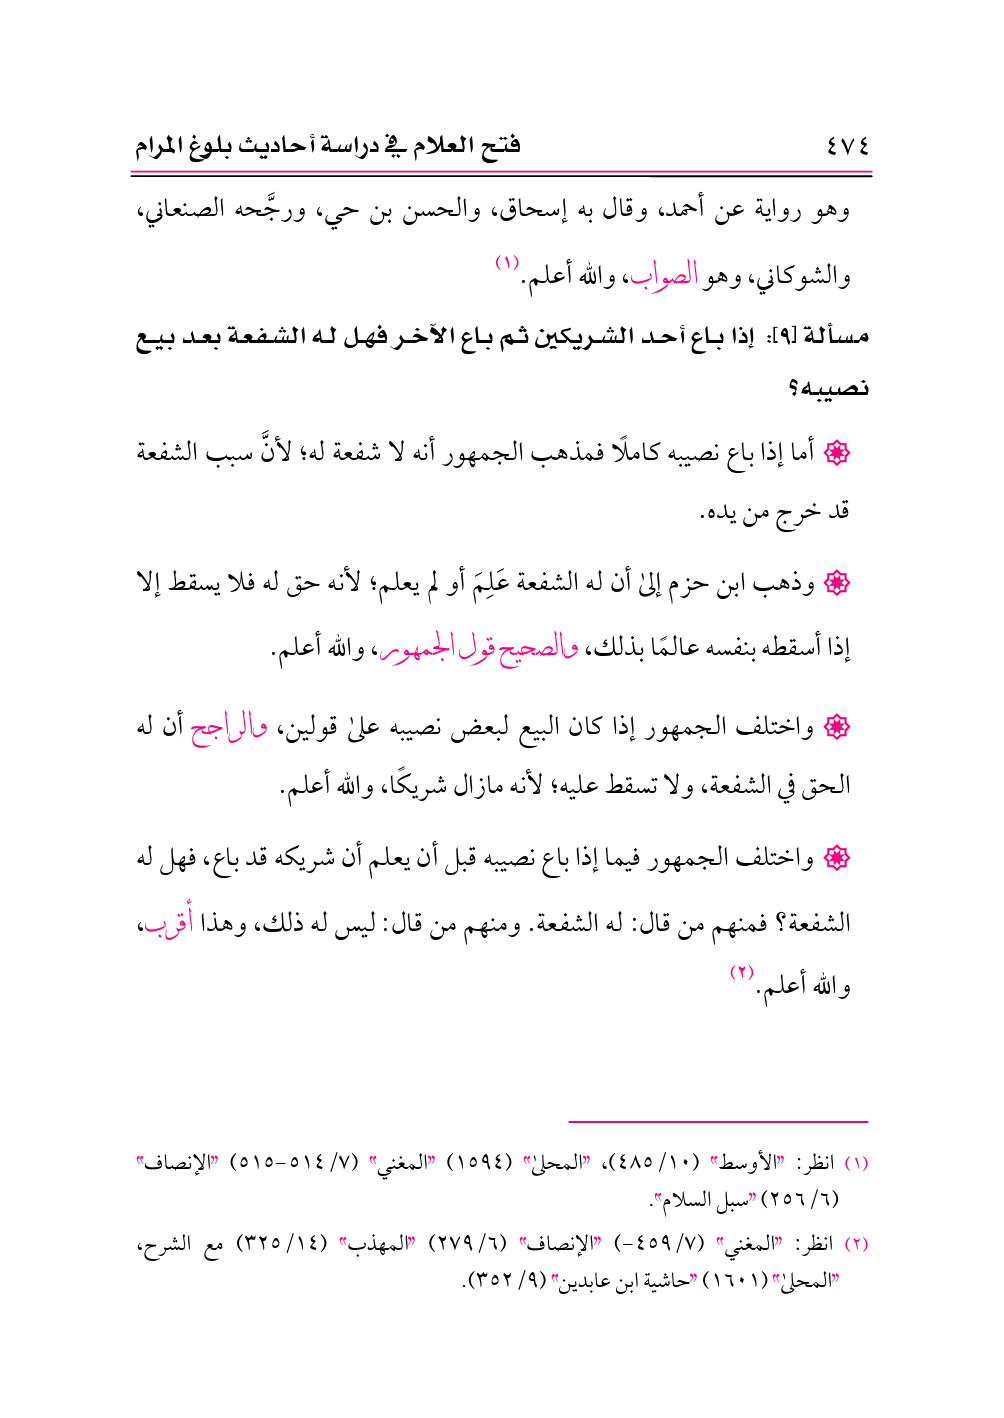 ٤٧٤ فتح العلام في دراسة أحاديث بلوغ المرام
وهو رواية عن أحمد، وقال به إسحاق، والحسن بن حي، ورجَّحه الصنعاني،
والشوكاني، وهو الصواب، والله أعلم.(١)
مسألة [٩]: إذا باع أحد الشريكين ثم باع الآخر فهل له الشفعة بعد بيع
نصيبه؟
أما إذا باع نصيبه كاملًا فمذهب الجمهور أنه لا شفعة له؛ لأنَّ سبب الشفعة
قد خرج من يده.
وذهب ابن حزم إلىٰ أن له الشفعة عَلِمَ أو لم يعلم؛ لأنه حق له فلا يسقط إلا
إذا أسقطه بنفسه عالمًا بذلك، والصحيح قول الجمهور، والله أعلم.
واختلف الجمهور إذا كان البيع لبعض نصيبه علىٰ قولين، والراجح أن له
الحق في الشفعة، ولا تسقط عليه؛ لأنه مازال شريكًا، والله أعلم.
واختلف الجمهور فيما إذا باع نصيبه قبل أن يعلم أن شريكه قد باع، فهل له
الشفعة؟ فمنهم من قال: له الشفعة. ومنهم من قال: ليس له ذلك، وهذا أقرب،
والله أعلم.(٢)
(١) انظر: "الأوسط" (١٠/ ٤٨٥)، "المحلىٰ" (١٥٩٤) "المغني" (٧/ ٥١٤-٥١٥) "الإنصاف"
(٦/ ٢٥٦) "سبل السلام".
(٢) انظر: "المغني" (٧/ ٤٥٩-) "الإنصاف" (٦/ ٢٧٩) "المهذب" (١٤/ ٣٢٥) مع الشرح،
"المحلىٰ" (١٦٠١) "حاشية ابن عابدين" (٩/ ٣٥٢).